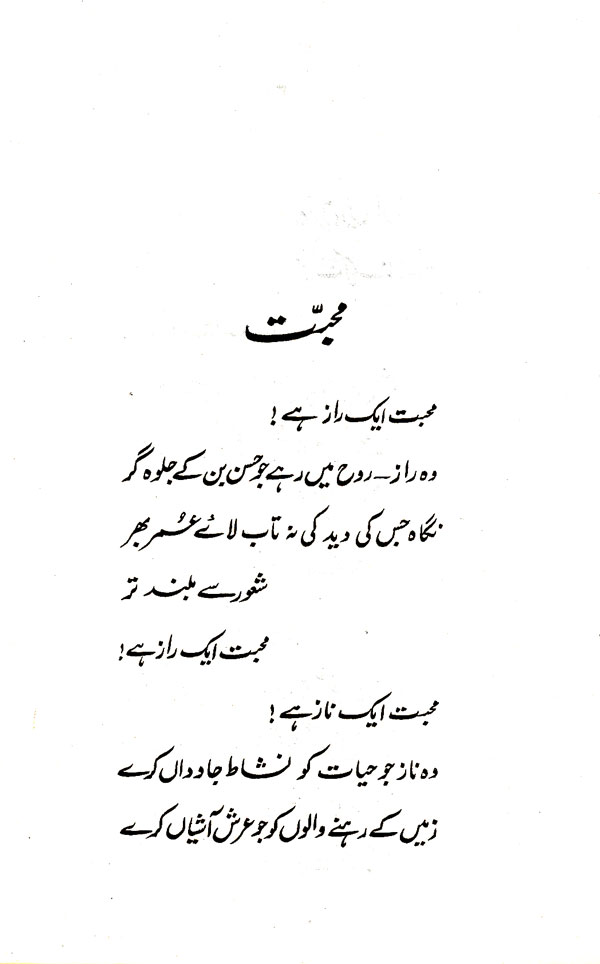 محبّت
محبت ایک راز ہے !
وہ راز ــ روح میں رہے جو حُسن بن کے جلوہ گر
نگاہ جس کی دید کی نہ تاب لائے عُمر بھر
شعور سے بلند تر
محبت ایک راز ہے !
محبت ایک ناز ہے !
وہ ناز جو حیات کو نشاطِ جاوداں کرے
زمیں کے رہنے والوں کو جو عرش آشیاں کرے